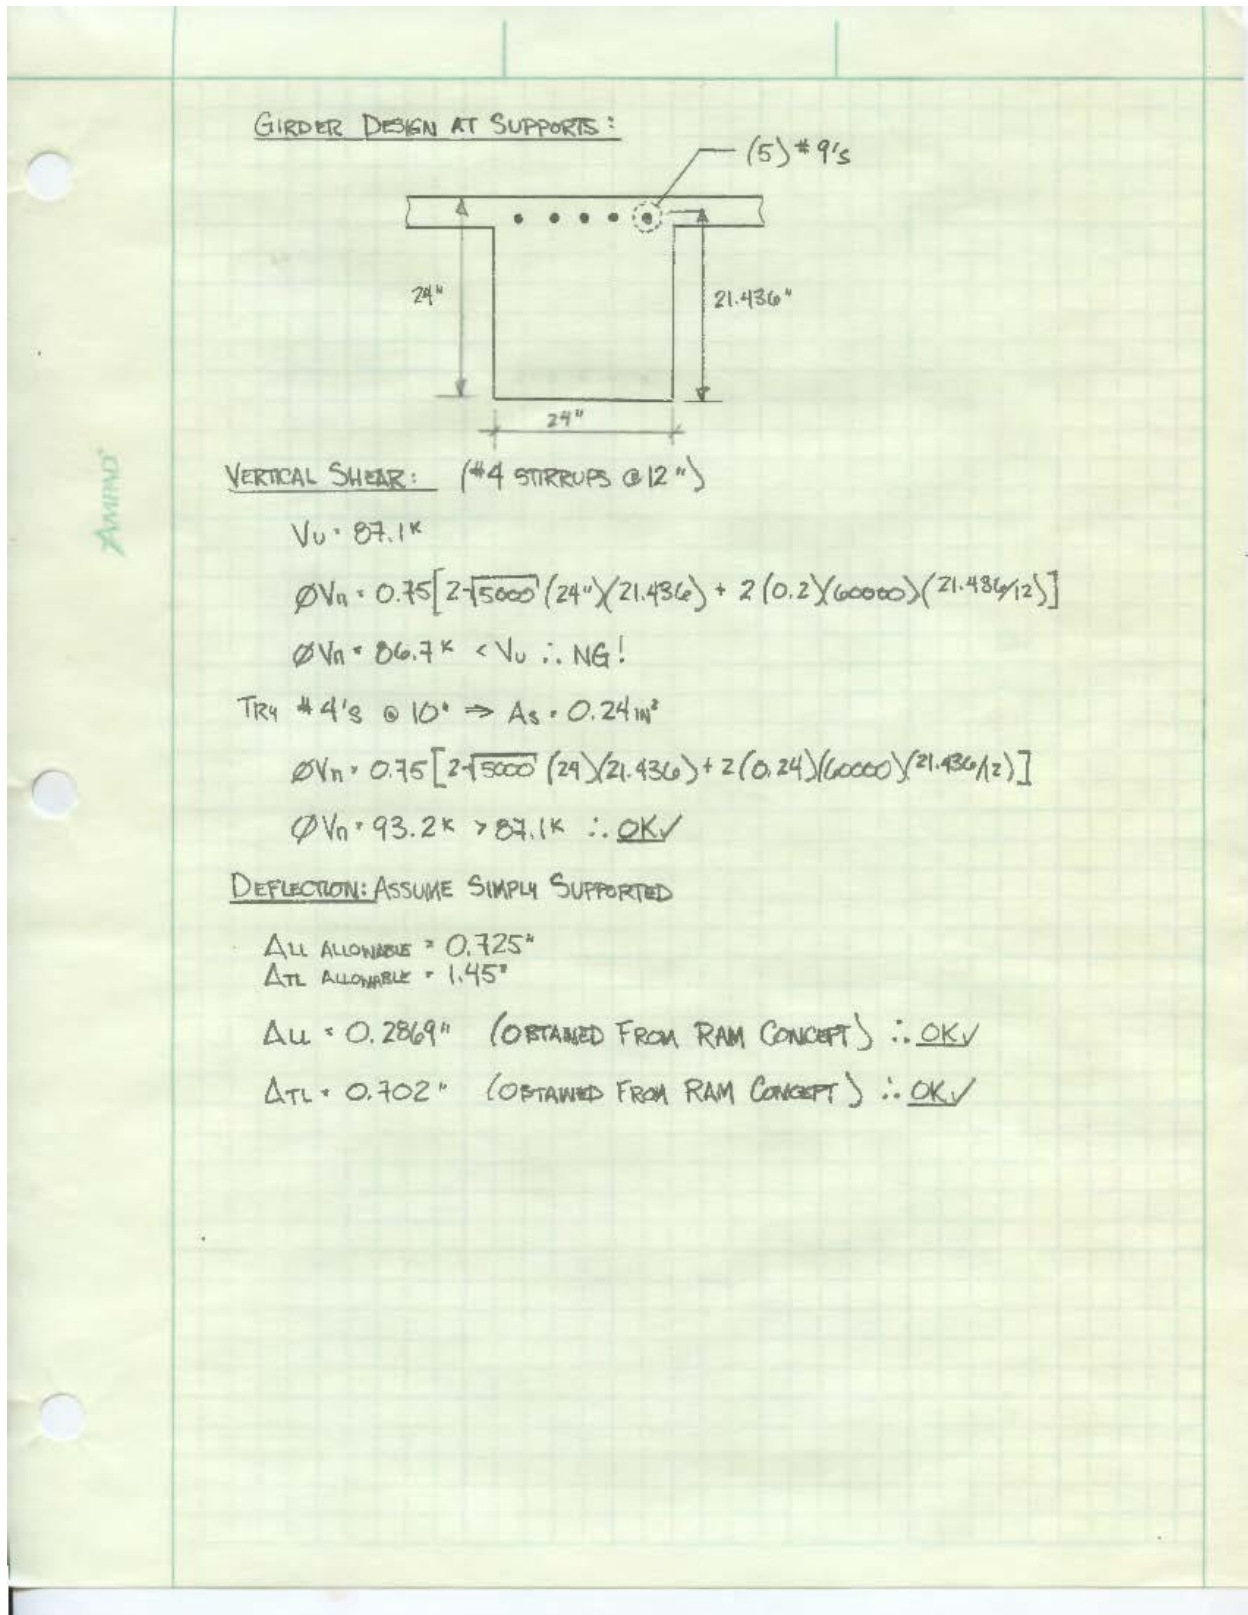 GIRDER DESIGN AT SUPPORTS:
(5) #9's
24"
21.436"
24"
AMPAD
VERTICAL SHEAR: (#4 STIRRUPS @ 12")
Vu = 87.1K
ØVn = 0.75[2√5000 (24")(21.436) + 2(0.2)(60000)(21.436/12)]
ØVn = 86.7K < Vu ∴ NG!
TRY #4's @ 10" ⇒ As = 0.24 IN²
ØVn = 0.75[2√5000 (24)(21.436) + 2(0.24)(60000)(21.436/12)]
ØVn = 93.2K > 87.1K ∴ OK✓
DEFLECTION: ASSUME SIMPLY SUPPORTED
ΔLL ALLOWABLE = 0.725"
ΔTL ALLOWABLE = 1.45"
ΔLL = 0.2869" (OBTAINED FROM RAM CONCEPT) ∴ OK✓
ΔTL = 0.702" (OBTAINED FROM RAM CONCEPT) ∴ OK✓